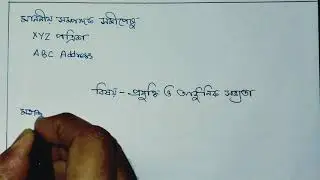 মাননীয় সম্পাদক সমীপেষু
XYZ পত্রিকা
ABC Address
বিষয় - প্রযুক্তি ও আধুনিক সভ্যতা